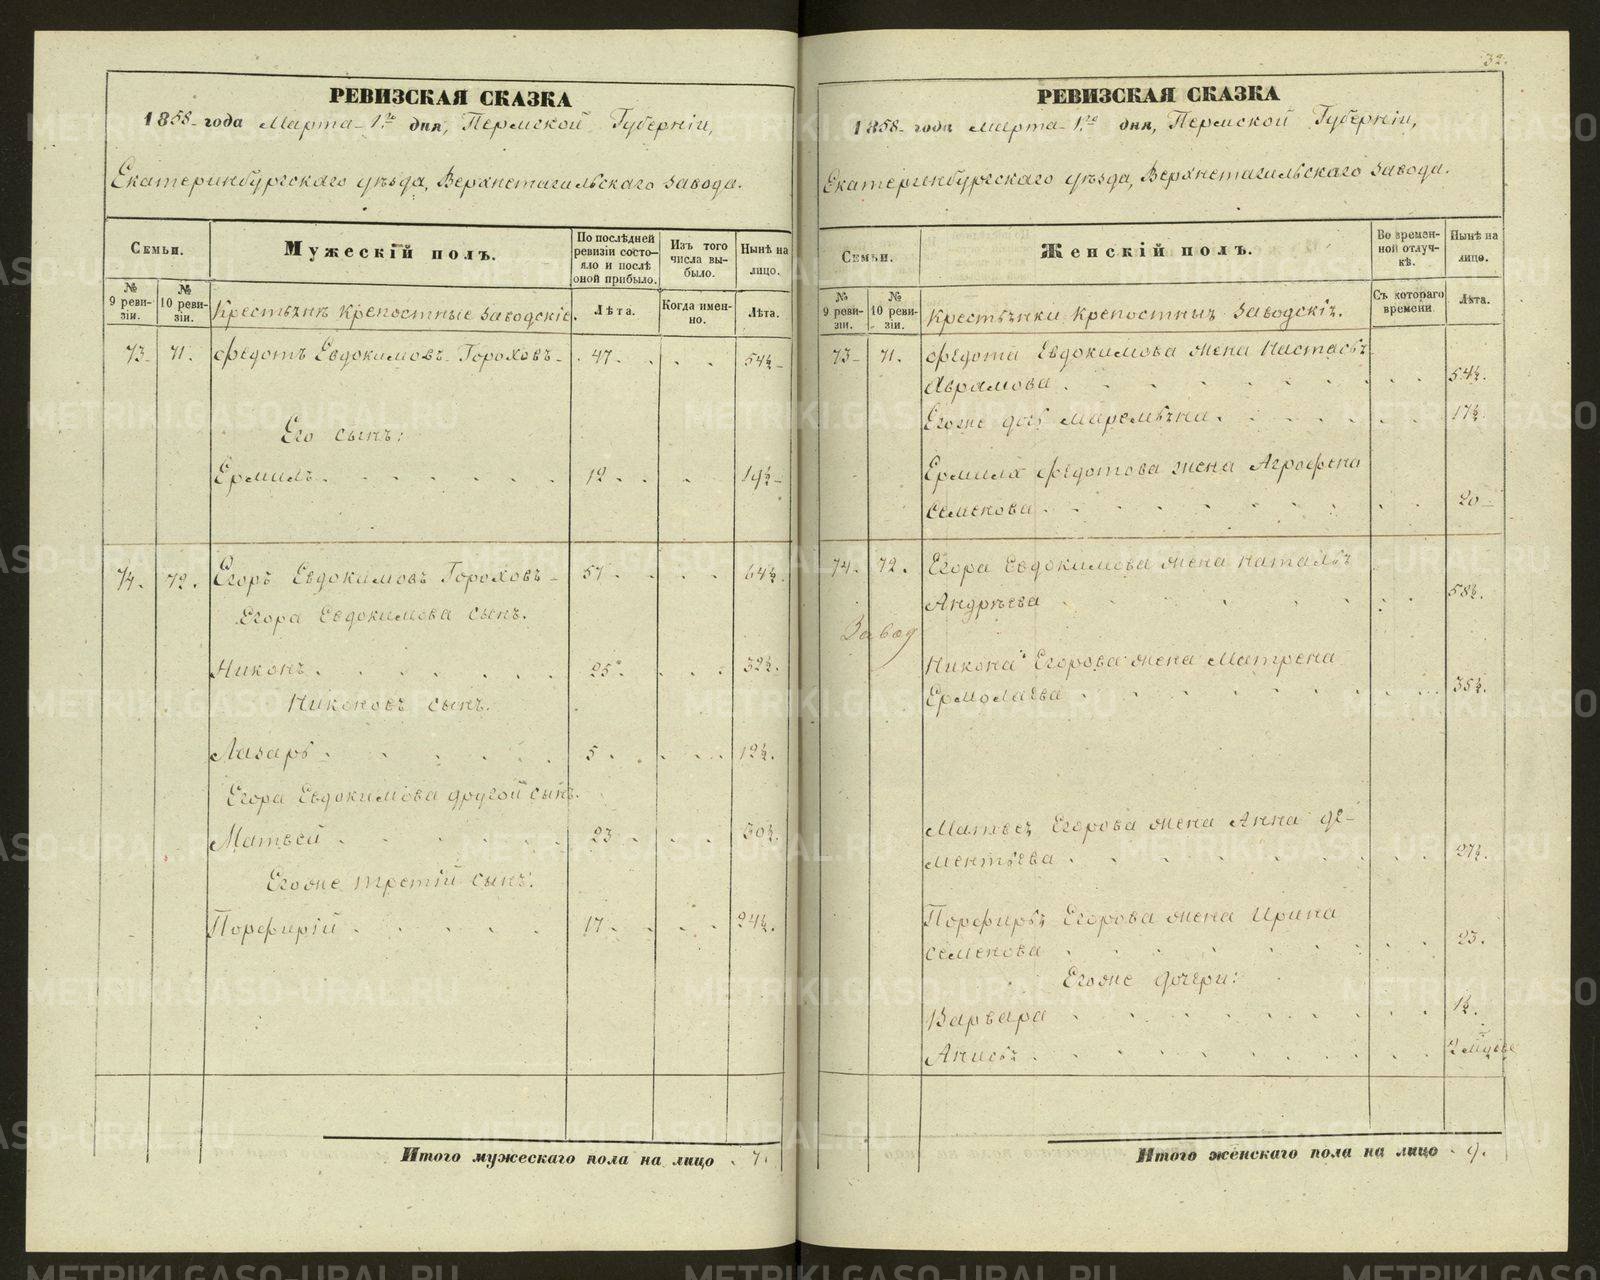 32.
РЕВИЗСКАЯ СКАЗКА
1858 года Марта 1го дня, Пермской Губерніи,
Екатеринбургскаго уѣзда, Верхнетагильскаго завода.
Семьи.
Мужескій полъ.
По послѣдней ревизіи состояло и послѣ оной прибыло.
Изъ того числа выбыло.
Нынѣ на лицо.
№ 9 ревизіи.
№ 10 ревизіи.
Крестьянъ крепостные заводскіе.
Лѣта.
Когда именно.
Лѣта.
73 71. Федотъ Евдокимовъ Гороховъ 47 54½
Его сынъ:
Ермилъ 12 19½
74. 72. Егоръ Евдокимовъ Гороховъ 57 64½
Егора Евдокимова сынъ.
Никонъ 25 32½
Никоновъ сынъ.
Лазарь 5 12½
Егора Евдокимова другой сынъ.
Матвей 23 30½
Егоже третій сынъ:
Порфирій 17 24½
Итого мужескаго пола на лицо 7.
РЕВИЗСКАЯ СКАЗКА
1858 года Марта 1го дня, Пермской Губерніи,
Екатеринбургскаго уѣзда, Верхнетагильскаго завода.
Семьи.
Женскій полъ.
Во временной отлучкѣ.
Нынѣ на лицо.
№ 9 ревизіи.
№ 10 ревизіи.
Крестьянки крепостныя заводскія.
Съ котораго времени
Лѣта.
73 71. Федота Евдокимова жена Настасья
Аврамова 54½
Егоже дочь Маремьяна 17½
Ермила Федотова жена Агрофена
Семенова 20
74. 72. Егора Евдокимова жена Наталья
Андрѣева 58½
Завод
Никона Егорова жена Матрена
Ермолаева 35½
Матвея Егорова жена Анна Де-
ментьева 27½
Порфирья Егорова жена Ирина
Семенова 23.
Егоже дочери:
Варвара 1½
Анисья
Итого женскаго пола на лицо 9.
METRIKI.GASO-URAL.RU